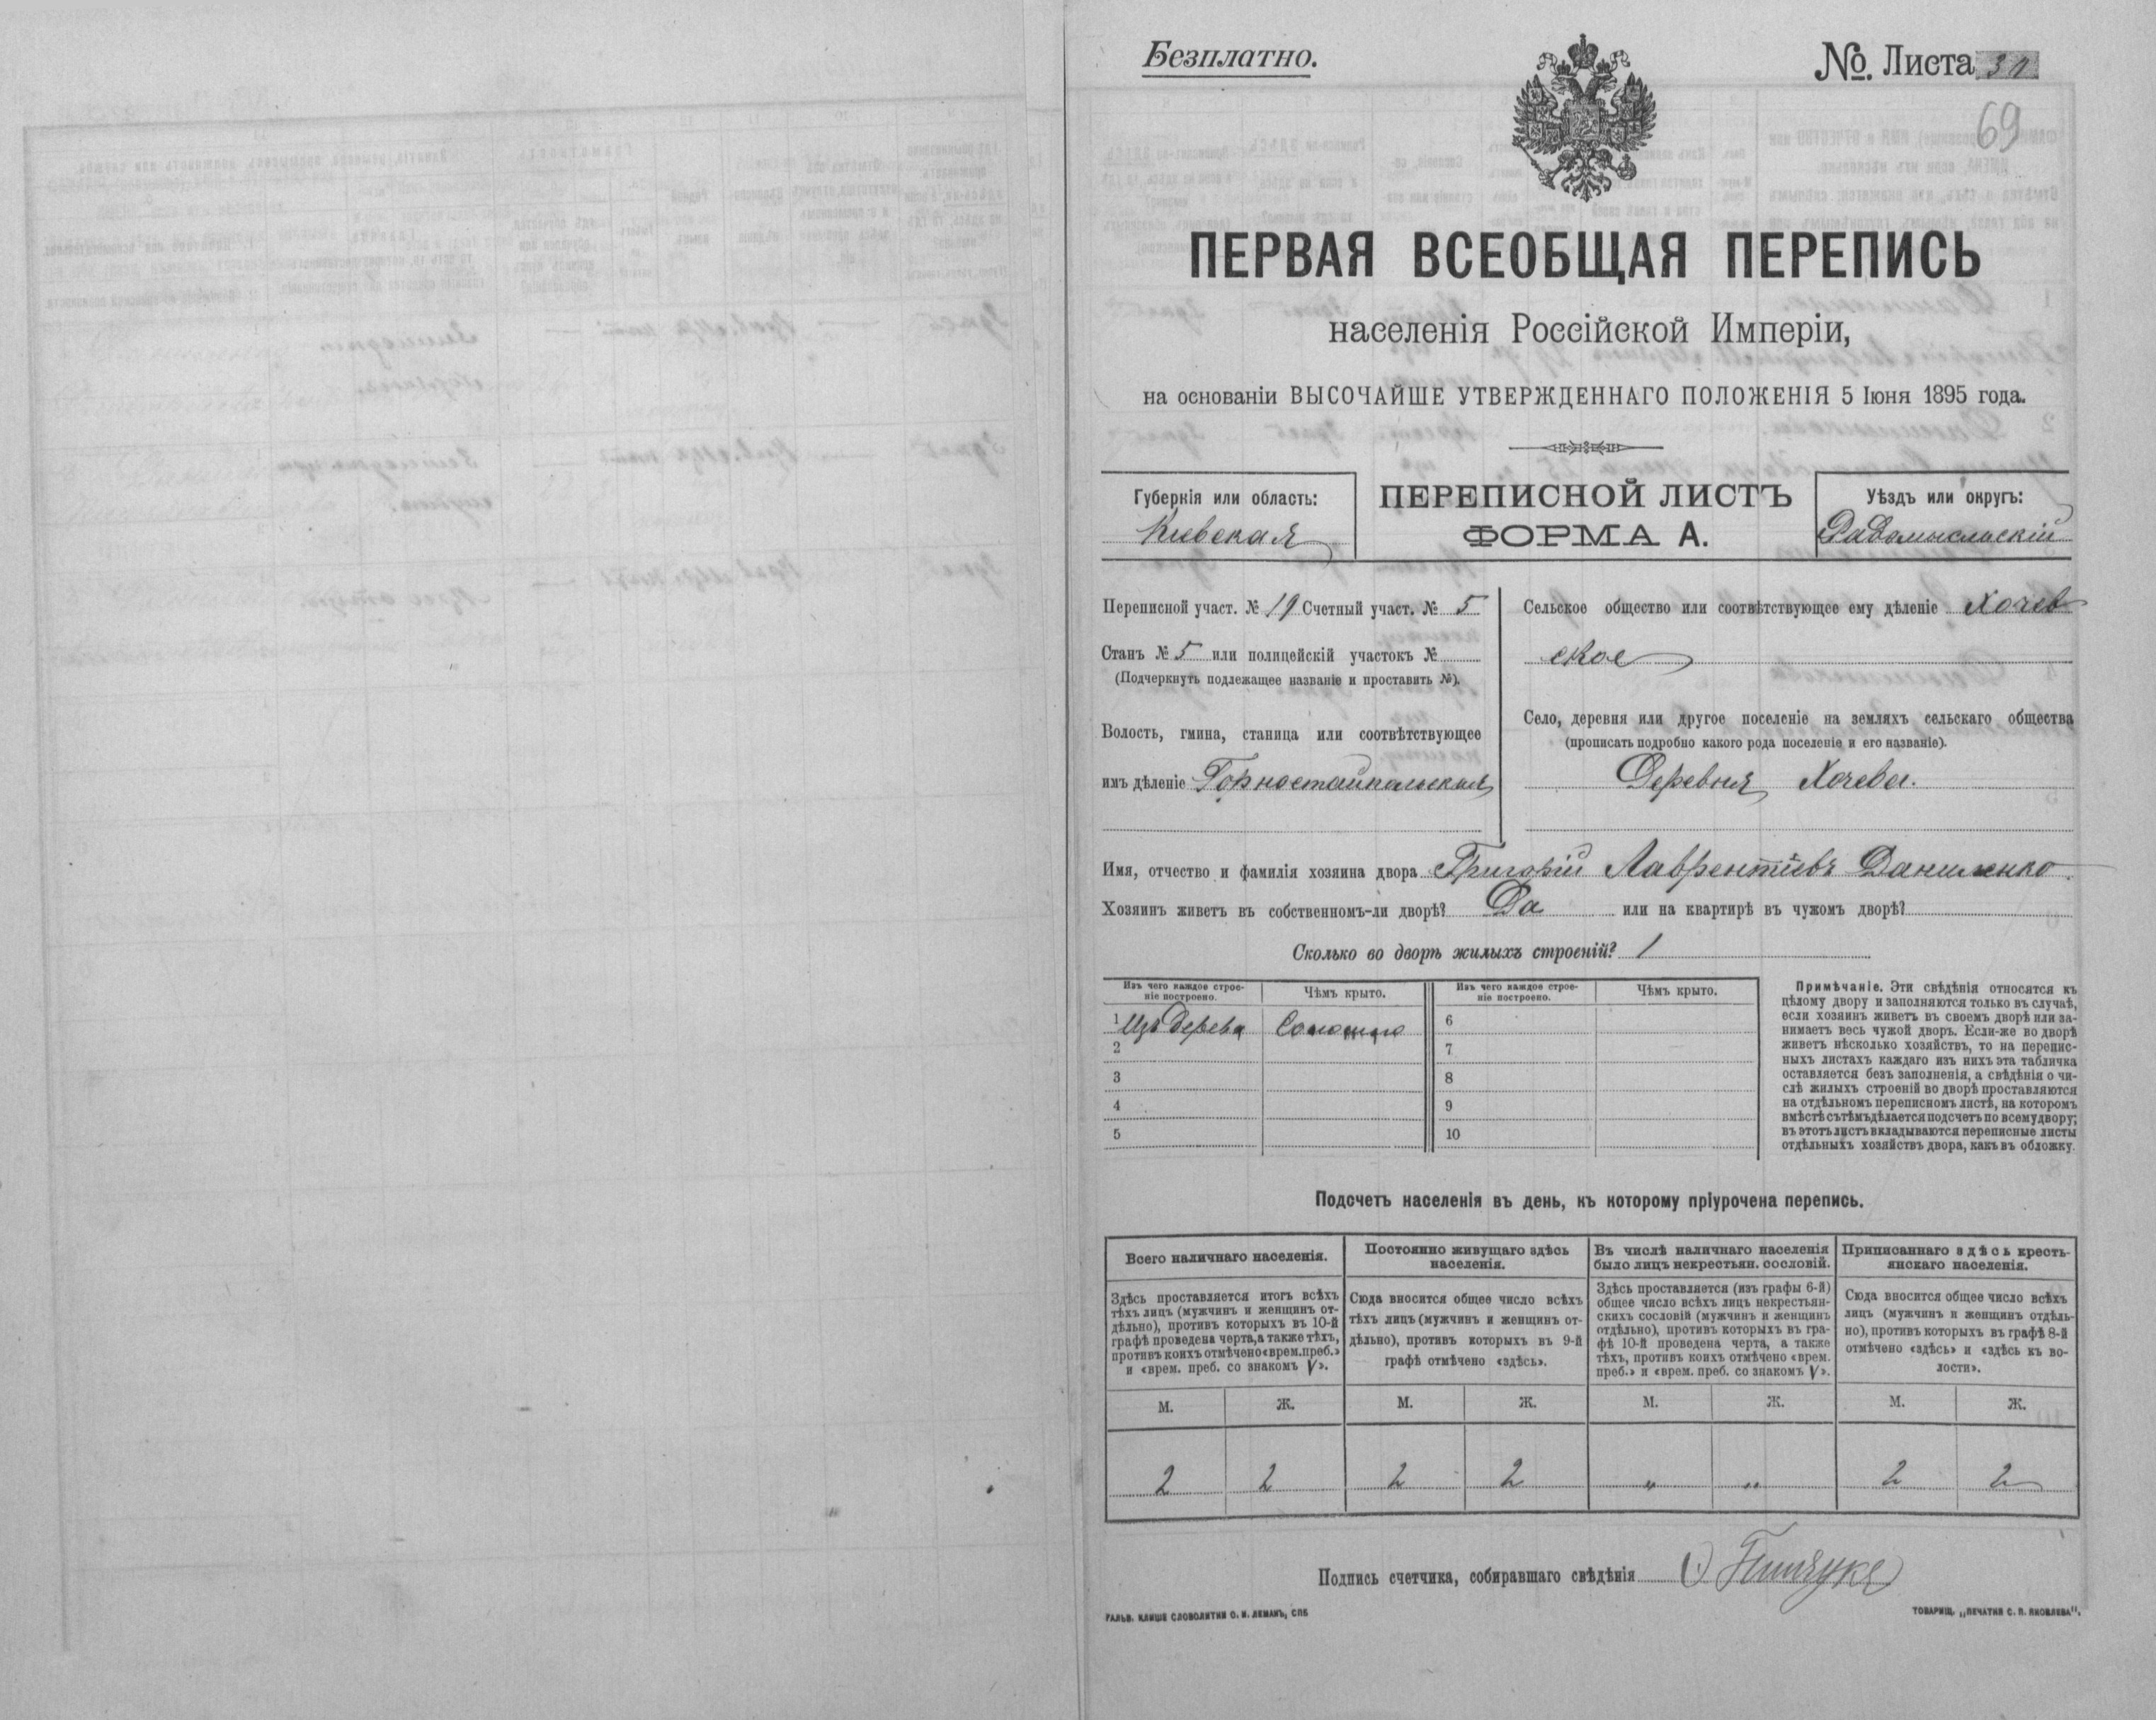 Безплатно.
№. Листа 31
69
ПЕРВАЯ ВСЕОБЩАЯ ПЕРЕПИСЬ
населенія Россійской Имперіи,
на основаніи ВЫСОЧАЙШЕ УТВЕРЖДЕННАГО ПОЛОЖЕНІЯ 5 Іюня 1895 года.
Губернія или область:
Кіевская
ПЕРЕПИСНОЙ ЛИСТЪ
ФОРМА А.
Уѣздъ или округъ:
Радомысльскій
Переписной участ. № 19 Счетный участ. № 5
Станъ № 5 или полицейскій участокъ №
(Подчеркнуть подлежащее названіе и проставить №).
Волость, гмина, станица или соотвѣтствующее
имъ дѣленіе Горностайпольская
Сельское общество или соотвѣтствующее ему дѣленіе Хочев
ское
Село, деревня или другое поселеніе на земляхъ сельскаго общества
(прописать подробно какого рода поселеніе и его названіе).
Деревня Хочева.
Имя, отчество и фамилія хозяина двора Григорій Лаврентіевъ Даниленко.
Хозяинъ живетъ въ собственномъ-ли дворѣ? Да или на квартирѣ въ чужомъ дворѣ?
Сколько во дворѣ жилыхъ строеній? 1
Изъ чего каждое строе-
ніе построено.
Чѣмъ крыто.
Изъ чего каждое строе-
ніе построено.
Чѣмъ крыто.
1 Изъ дерева Соломою 6
2 7
3 8
4 9
5 10
Примѣчаніе. Эти свѣдѣнія относятся къ
цѣлому двору и заполняются только въ случаѣ,
если хозяинъ живетъ въ своемъ дворѣ или за-
нимаетъ весь чужой дворъ. Если-же во дворѣ
живетъ нѣсколько хозяйствъ, то на перепис-
ныхъ листахъ каждаго изъ нихъ эта табличка
оставляется безъ заполненія, а свѣдѣнія о чи-
слѣ жилыхъ строеній во дворѣ проставляются
на отдѣльномъ переписномъ листѣ, на которомъ
вмѣстѣ съ тѣмъ дѣлается подсчетъ по всему двору;
въ этотъ листъ вкладываются переписные листы
отдѣльныхъ хозяйствъ двора, какъ въ обложку.
Подсчетъ населенія въ день, къ которому пріурочена перепись.
Всего наличнаго населенія.
Здѣсь проставляется итогъ всѣхъ
тѣхъ лицъ (мужчинъ и женщинъ от-
дѣльно), противъ которыхъ въ 10-й
графѣ проведена черта, а также тѣхъ,
противъ коихъ отмѣчено «врем. преб.»
и «врем. преб. со знакомъ V».
Постоянно живущаго здѣсь
населенія.
Сюда вносится общее число всѣхъ
тѣхъ лицъ (мужчинъ и женщинъ от-
дѣльно), противъ которыхъ въ 9-й
графѣ отмѣчено «здѣсь».
Въ числѣ наличнаго населенія
было лицъ некрестьян. сословій.
Здѣсь проставляется (изъ графы 6-й)
общее число всѣхъ лицъ некрестьян-
скихъ сословій (мужчинъ и женщинъ
отдѣльно), противъ которыхъ въ гра-
фѣ 10-й проведена черта, а также
тѣхъ, противъ коихъ отмѣчено «врем.
преб.» и «врем. преб. со знакомъ V».
Приписаннаго здѣсь кресть-
янскаго населенія.
Сюда вносится общее число всѣхъ
лицъ (мужчинъ и женщинъ отдѣль-
но), противъ которыхъ въ графѣ 8-й
отмѣчено «здѣсь» и «здѣсь къ во-
лости».
М. Ж. М. Ж. М. Ж. М. Ж.
2 2 2 2 " " 2 2
Подпись счетчика, собиравшаго свѣдѣнія
ГАЛЬВ. КЛИШЕ СЛОВОЛИТНИ О. И. ЛЕМАНЪ, СПБ
ТОВАРИЩ. „ПЕЧАТНЯ С. П. ЯКОВЛЕВА".